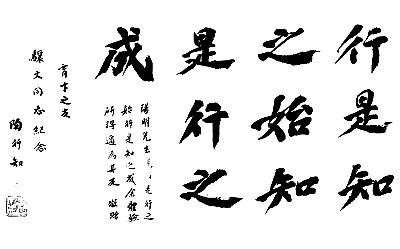 行是知
之始知
是行之
成
陽明先生是行之
始行是知之成余體驗
所得適為其反
育才之友
文同志紀念
陶行知